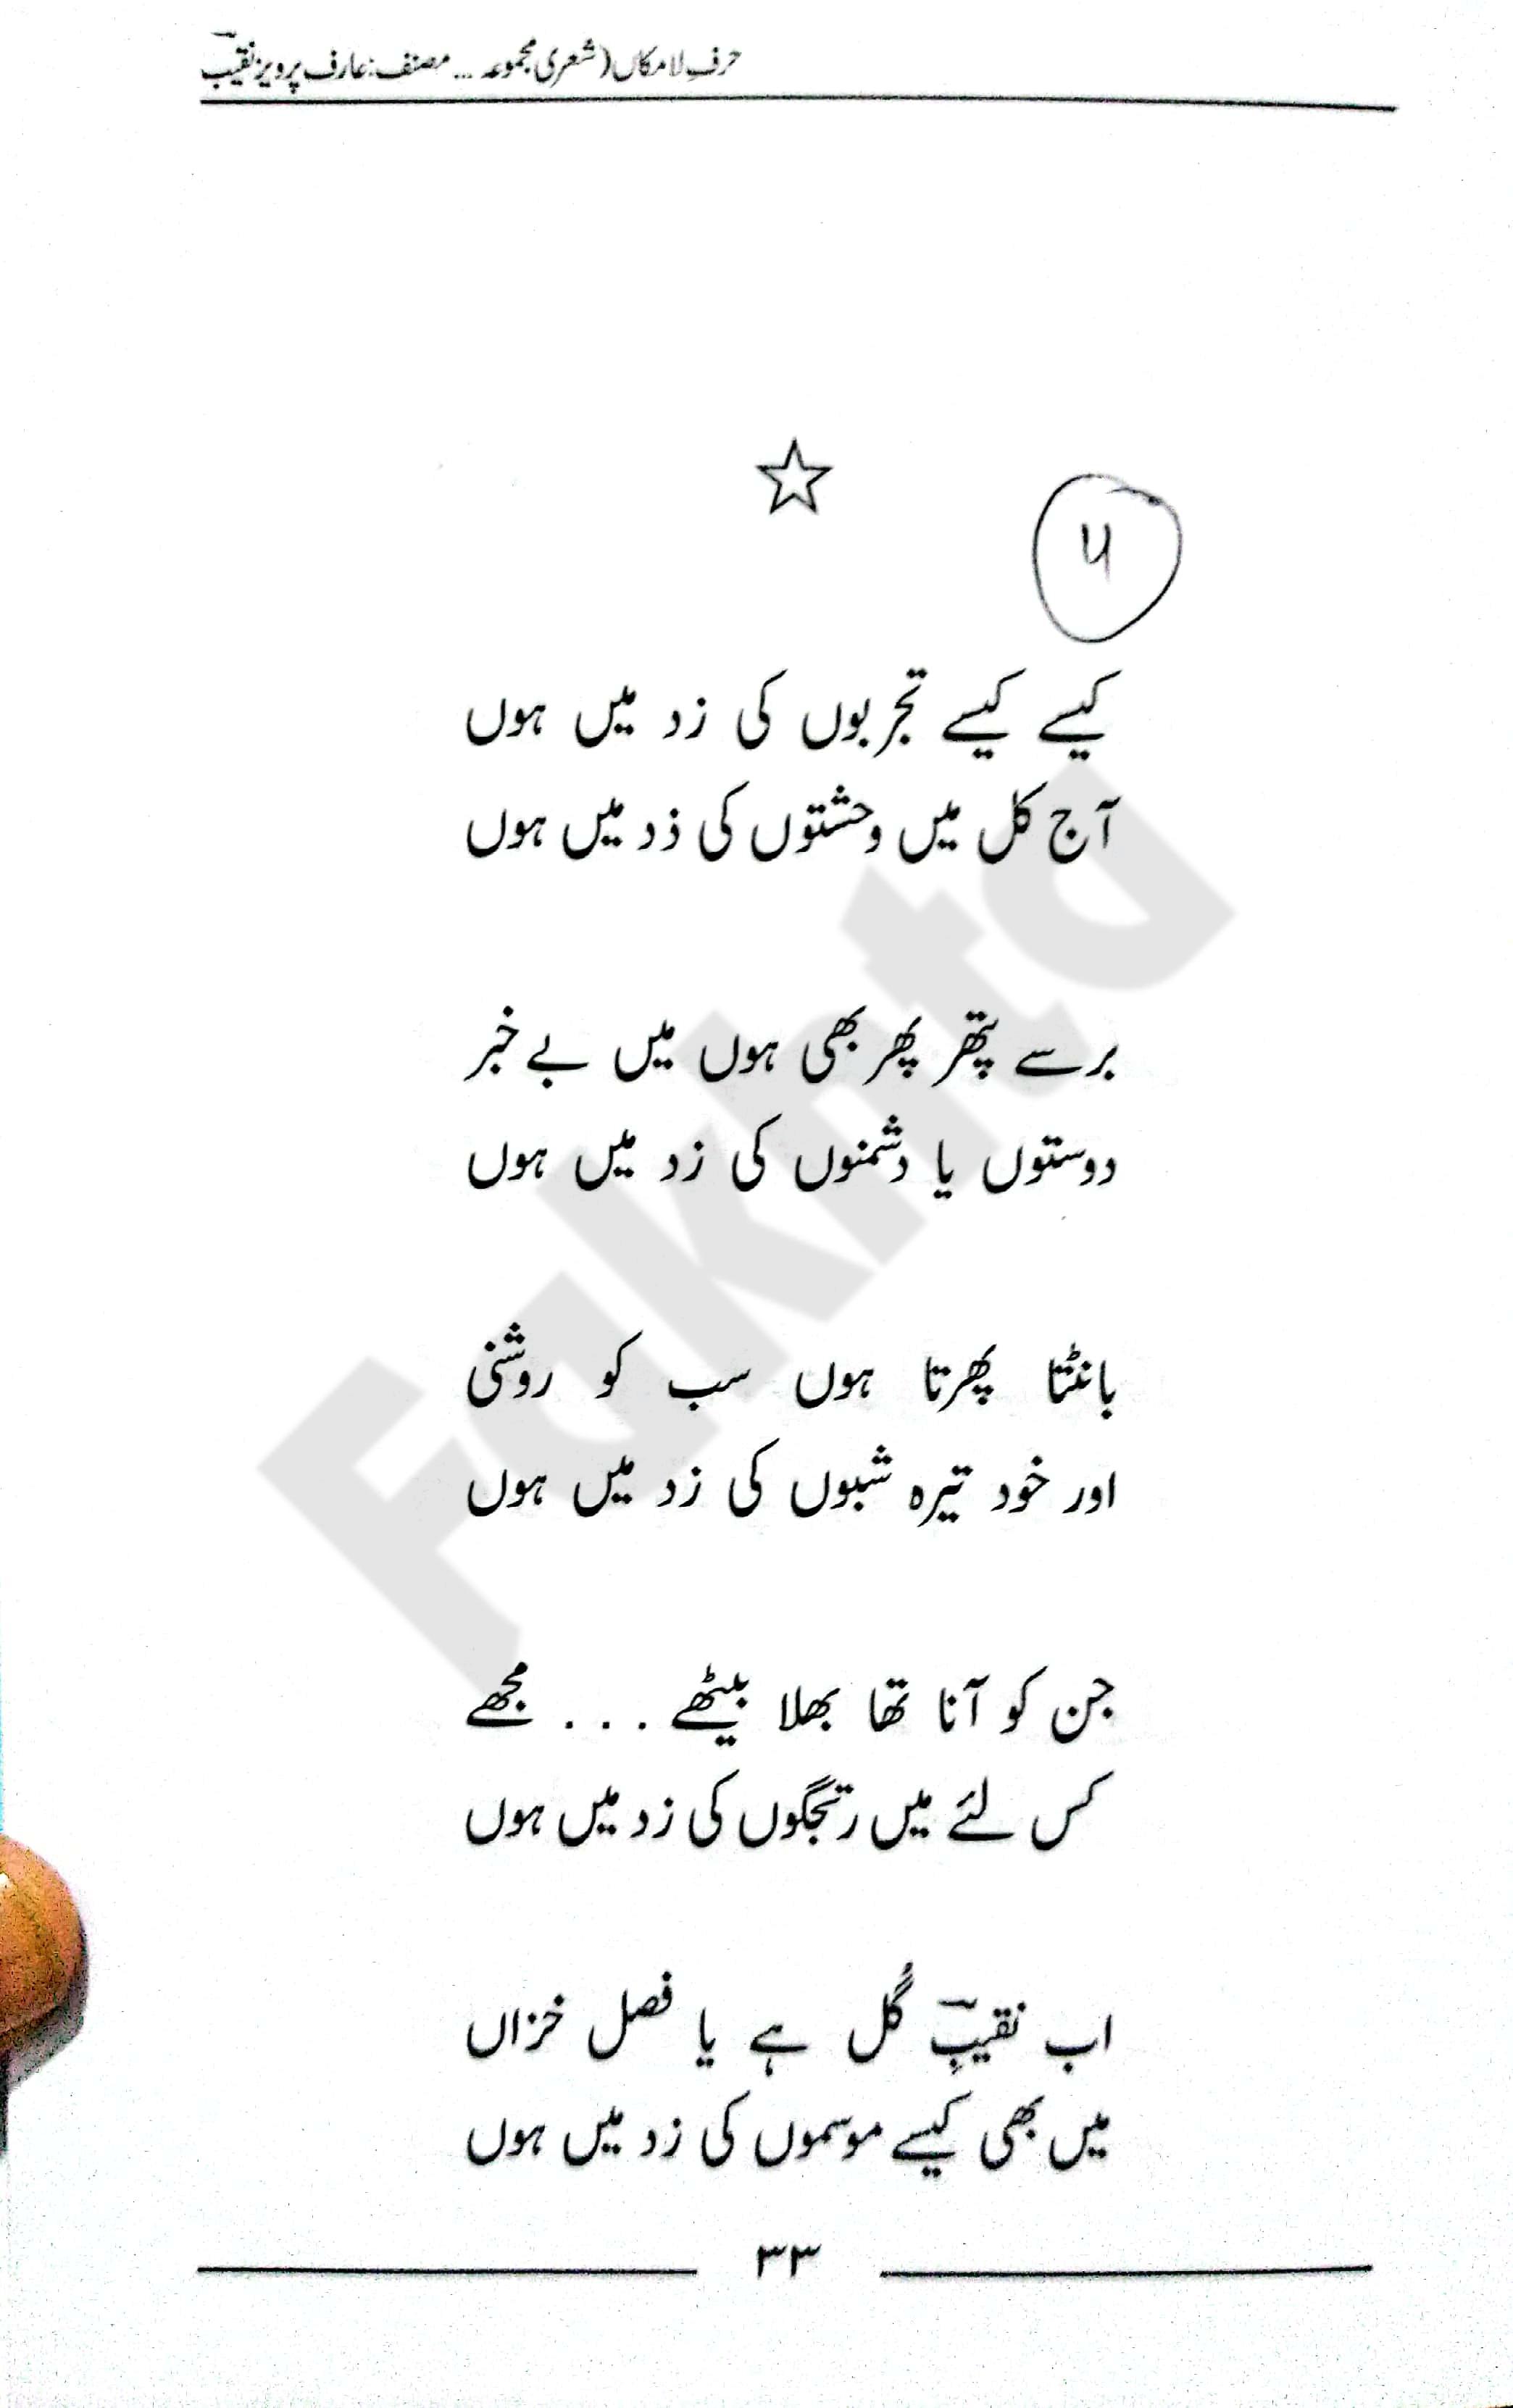 حرفِ لا مکاں (شعری مجموعہ ... مصنف: عارف پرویز نقیبؔ
۴
کیسے کیسے تجربوں کی زد میں ہوں
آج کل میں وحشتوں کی ذد میں ہوں
برسے پتھر پھر بھی ہوں میں بے خبر
دوستوں یا دشمنوں کی زد میں ہوں
بانٹتا پھرتا ہوں سب کو روشنی
اور خود تیرہ شبوں کی زد میں ہوں
جن کو آنا تھا بھلا بیٹھے . . . مجھے
کس لئے میں رتجگوں کی زد میں ہوں
اب نقیبِؔ گُل ہے یا فصل خزاں
میں بھی کیسے موسموں کی زد میں ہوں
۳۳
Fakhta